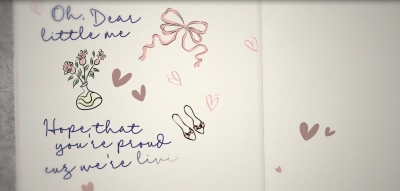 Oh, Dear
little me
Hope that
you're proud
cuz we're livi